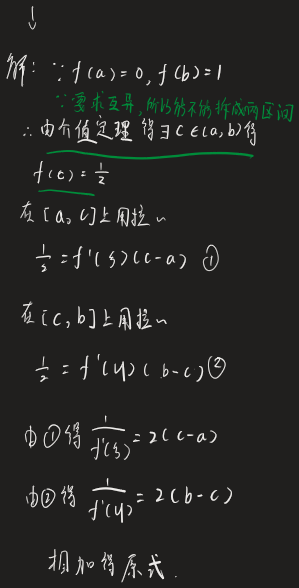 ↓
解: ∵ f(a)=0, f(b)=1
∵要求互异,所以能不能拆成两区间
∴ 由介值定理 得∃C∈(a,b)得
f(c)=1/2
在[a,c]上用拉~
1/2=f'(ξ)(c-a) ①
在[c,b]上用拉~
1/2=f'(η)(b-c) ②
由①得 1/f'(ξ)=2(c-a)
由②得 1/f'(η)=2(b-c)
相加得原式.